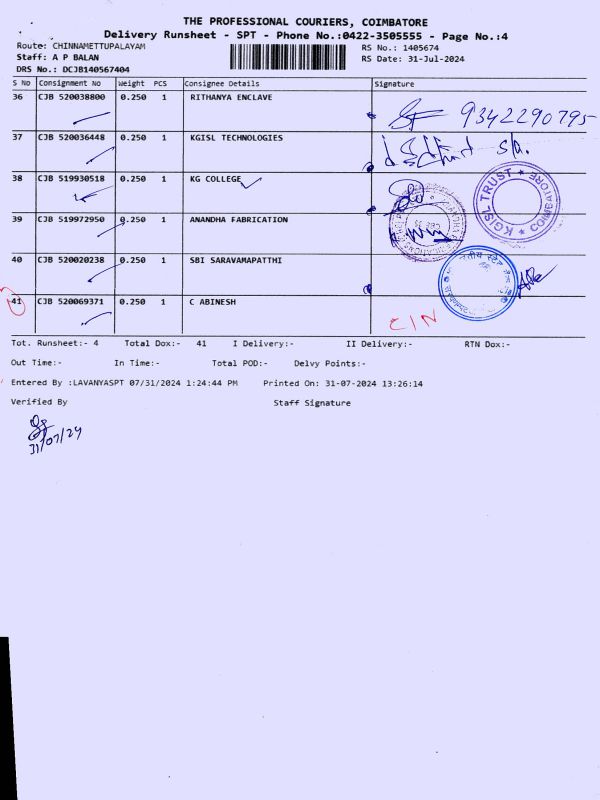 THE PROFESSIONAL COURIERS, COIMBATORE
Delivery Runsheet - SPT - Phone No.:0422-3505555 - Page No.:4
Route: CHINNAMETTUPALAYAM
RS No.: 1405674
Staff: A P BALAN
RS Date: 31-Jul-2024
DRS No.: DCJB140567404
S No Consignment No Weight PCS Consignee Details Signature
36 CJB 520038800 0.250 1 RITHANYA ENCLAVE
9342290795
37 CJB 520036448 0.250 1 KGISL TECHNOLOGIES
38 CJB 519930518 0.250 1 KG COLLEGE
KGISL TRUST ★ COIMBATORE ★
39 CJB 519972950 0.250 1 ANANDHA FABRICATION
40 CJB 520020238 0.250 1 SBI SARAVAMAPATTHI
41 CJB 520069371 0.250 1 C ABINESH
CIN
Tot. Runsheet:- 4 Total Dox:- 41 I Delivery:- II Delivery:- RTN Dox:-
Out Time:- In Time:- Total POD:- Delvy Points:-
Entered By :LAVANYASPT 07/31/2024 1:24:44 PM Printed On: 31-07-2024 13:26:14
Verified By Staff Signature
31/07/24